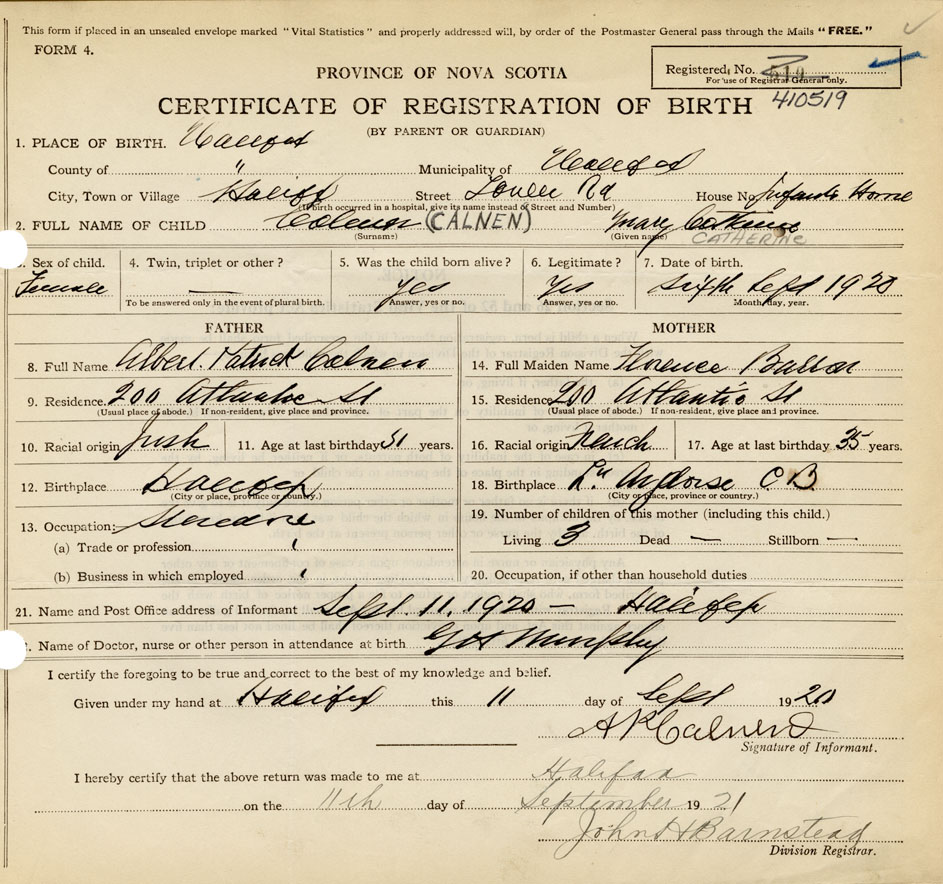 This form if placed in an unsealed envelope marked "Vital Statistics" and properly addressed will, by order of the Postmaster General pass through the Mails "FREE."
FORM 4.
Registered No.
For use of Registrar General only.
PROVINCE OF NOVA SCOTIA
CERTIFICATE OF REGISTRATION OF BIRTH 410519
(BY PARENT OR GUARDIAN)
1. PLACE OF BIRTH. Halifax
County of " Municipality of Halifax
City, Town or Village Halifax Street Tower Rd House No. Infants Home
(If birth occurred in a hospital, give its name instead of Street and Number)
2. FULL NAME OF CHILD Calnen (CALNEN) Mary Catherine CATHERINE
(Surname?) (Given name)
3. Sex of child. 4. Twin, triplet or other? 5. Was the child born alive? 6. Legitimate? 7. Date of birth.
Female — yes Yes sixth Sept 1920
To be answered only in the event of plural birth. Answer, yes or no. Answer, yes or no. Month, day, year.
FATHER MOTHER
8. Full Name Albert Patrick Calnen 14. Full Maiden Name Florence Barron
9. Residence 200 Atlantic St 15. Residence 200 Atlantic St
(Usual place of abode.) If non-resident, give place and province. (Usual place of abode.) If non-resident, give place and province.
10. Racial origin Irish 11. Age at last birthday years. 16. Racial origin French 17. Age at last birthday 35 years.
12. Birthplace Halifax 18. Birthplace C B
(City or place, province or country.) (City or place, province or country.)
13. Occupation: Stevedore 19. Number of children of this mother (including this child.)
(a) Trade or profession Living 3 Dead — Stillborn —
(b) Business in which employed 20. Occupation, if other than household duties
21. Name and Post Office address of Informant Sept. 11. 1920 — Halifax
Name of Doctor, nurse or other person in attendance at birth G H Murphy
I certify the foregoing to be true and correct to the best of my knowledge and belief.
Given under my hand at Halifax this 11 day of Sept 1920
A P Calnen
Signature of Informant.
I hereby certify that the above return was made to me at Halifax
on the 11th day of September 1921
John H Barnstead
Division Registrar.